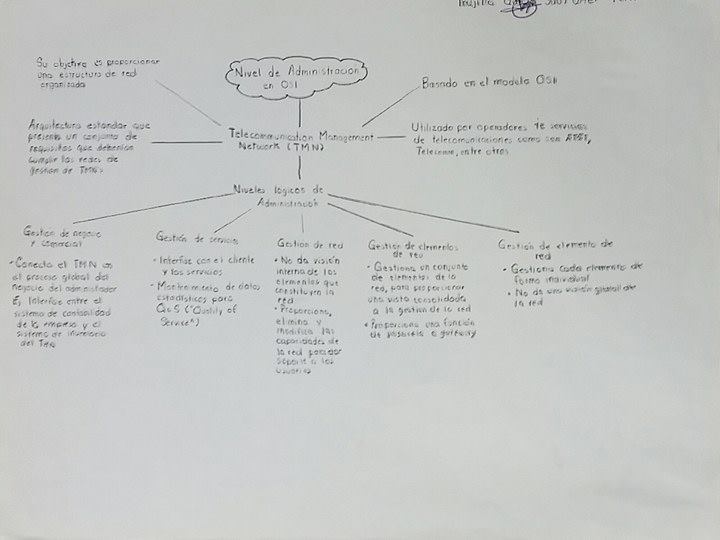 Nivel de Administración
en OSI
Su objetivo es proporcionar
una estructura de red
organizada
Basado en el modelo OSI
Arquitectura estandar que
presenta un conjunto de
requisitos que deberían
cumplir las redes de
gestión de TMN's
Telecommunication Management
Network (TMN)
Utilizado por operadores de servicios
de telecomunicaciones como son AT&T,
Telecomm, entre otros
Niveles lógicos de
Administración
Gestión de negocio
y comercial
• Conecta el TMN con
el proceso global del
negocio del administrador
Es Interfaz entre el
sistema de contabilidad
de la empresa y el
sistema de inventario
del TMN
Gestión de servicios
• Interfaz con el cliente
y los servicios
• Mantenimiento de datos
estadísticos para
QoS ("Quality of
Service")
Gestión de red
• No da visión
interna de los
elementos que
constituyen la
red
• Proporciona,
elimina y
modifica las
capacidades de
la red para dar
soporte a los
usuarios
Gestión de elementos
de red
• Gestiona un conjunto
de elementos de la
red, para proporcionar
una vista consolidada
a la gestión de la red
• Proporciona una función
de pasarela o gateway
Gestión de elemento de
red
• Gestiona cada elemento de
forma individual
• No da una visión global de
la red